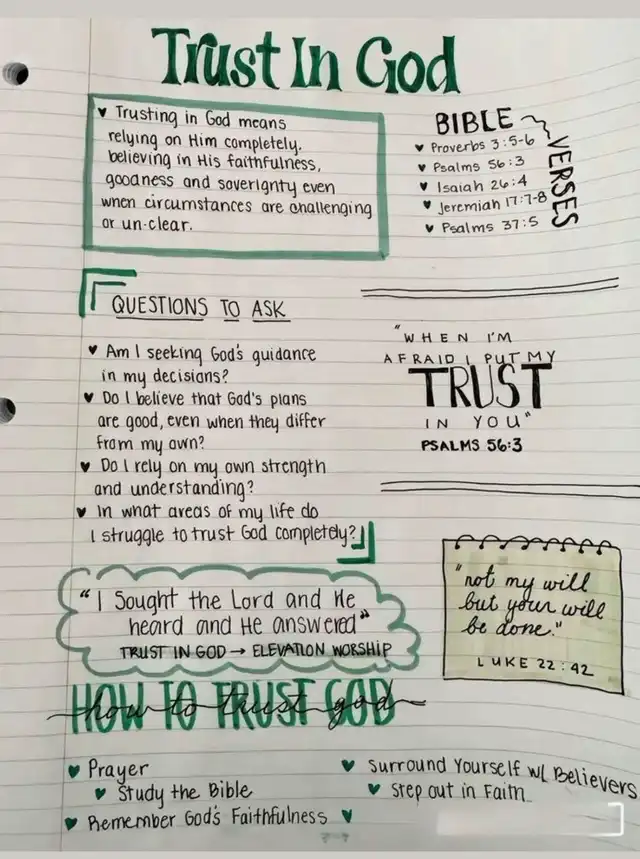 Trust In God
♥ Trusting in God means
relying on Him completely.
believing in His faithfulness,
goodness and soverignty even
when circumstances are challenging
or un-clear.
BIBLE
VERSES
♥ Proverbs 3:5-6
♥ Psalms 56:3
♥ Isaiah 26:4
♥ Jeremiah 17:7-8
♥ Psalms 37:5
QUESTIONS TO ASK
♥ Am I seeking God's guidance
in my decisions?
♥ Do I believe that God's plans
are good, even when they differ
from my own?
♥ Do I rely on my own strength
and understanding?
♥ In what areas of my life do
I struggle to trust God completely?
"WHEN I'M
AFRAID I PUT MY
TRUST
IN YOU"
PSALMS 56:3
"I Sought the Lord and He
heard and He answered"
TRUST IN GOD → ELEVATION WORSHIP
"not my will
but your will
be done."
LUKE 22:42
HOW TO TRUST GOD
how to trust god
♥ Prayer
♥ Study the Bible
♥ Remember God's Faithfulness ♥
♥ Surround Yourself w/ Believers
♥ Step out in Faith